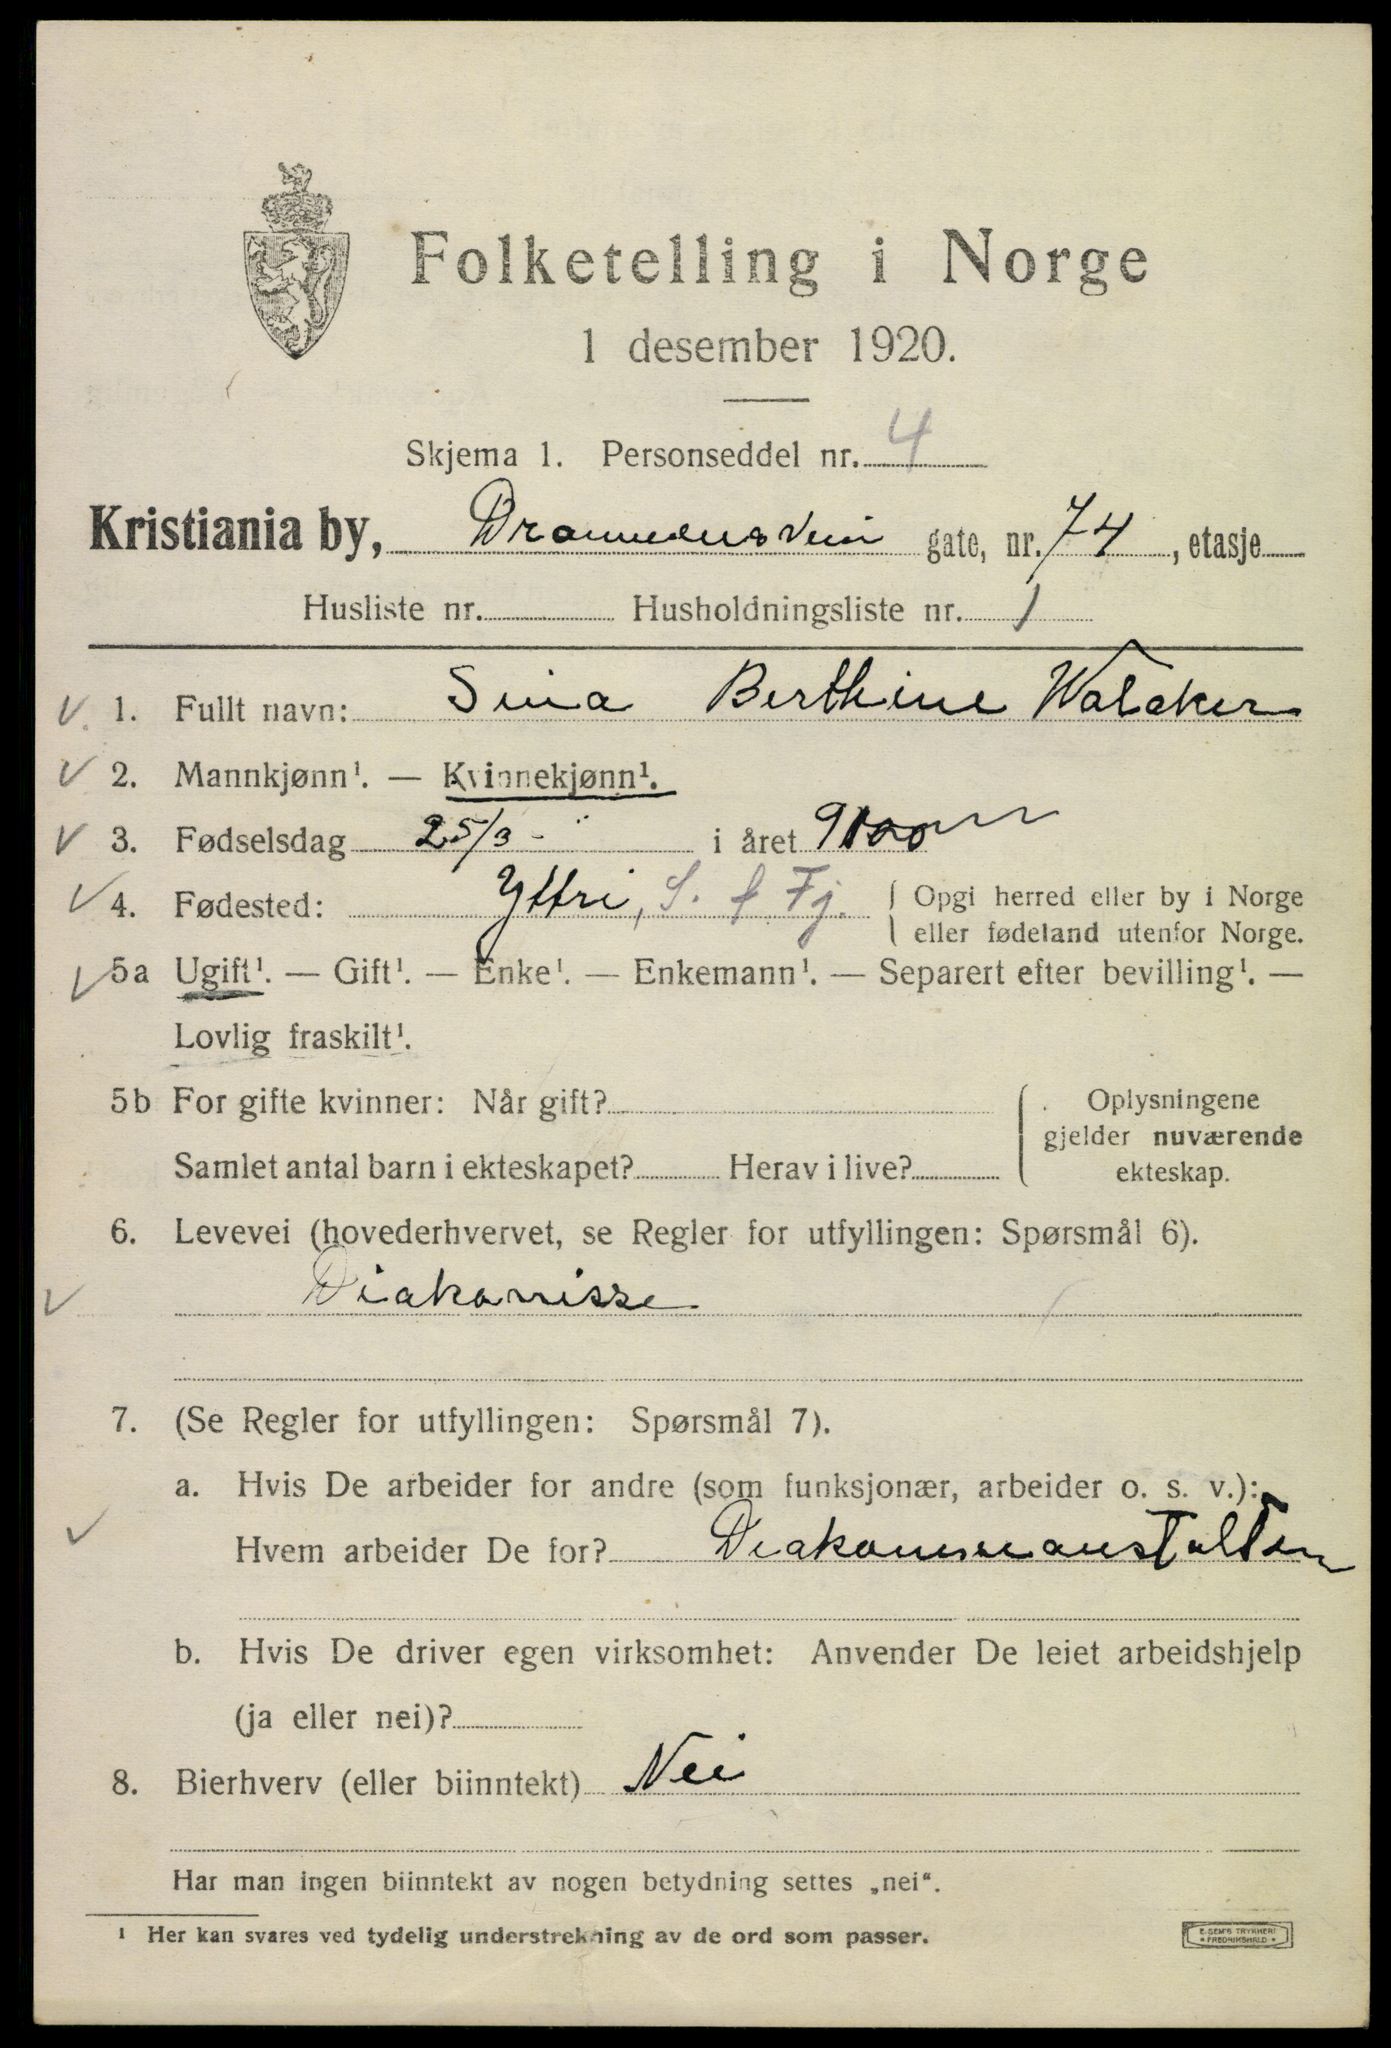 Folketelling i Norge
1 desember 1920.
Skjema 1. Personseddel nr. 4
Kristiania by, Drammensvein gate, nr. 74, etasje
Husliste nr. Husholdningsliste nr. 1
1. Fullt navn: Sina Berthine Walaker
2. Mannkjønn¹. — Kvinnekjønn¹.
3. Fødselsdag 25/3 - i året
4. Fødested: Yttri, S. f Fj. { Opgi herred eller by i Norge
eller fødeland utenfor Norge.
5a Ugift¹. — Gift¹. — Enke¹. — Enkemann¹. — Separert efter bevilling¹. —
Lovlig fraskilt¹.
5b For gifte kvinner: Når gift? { Oplysningene
gjelder nuværende
Samlet antal barn i ekteskapet? Herav i live? ekteskap.
6. Levevei (hovederhvervet, se Regler for utfyllingen: Spørsmål 6).
Diakonisse
7. (Se Regler for utfyllingen: Spørsmål 7).
a. Hvis De arbeider for andre (som funksjonær, arbeider o. s. v.):
Hvem arbeider De for? Diakonisseanstalten
b. Hvis De driver egen virksomhet: Anvender De leiet arbeidshjelp
(ja eller nei)?
8. Bierhverv (eller biinntekt) Nei
Har man ingen biinntekt av nogen betydning settes „nei“.
¹ Her kan svares ved tydelig understrekning av de ord som passer.
E. SEM'S TRYKKERI
* FREDRIKSHALD *